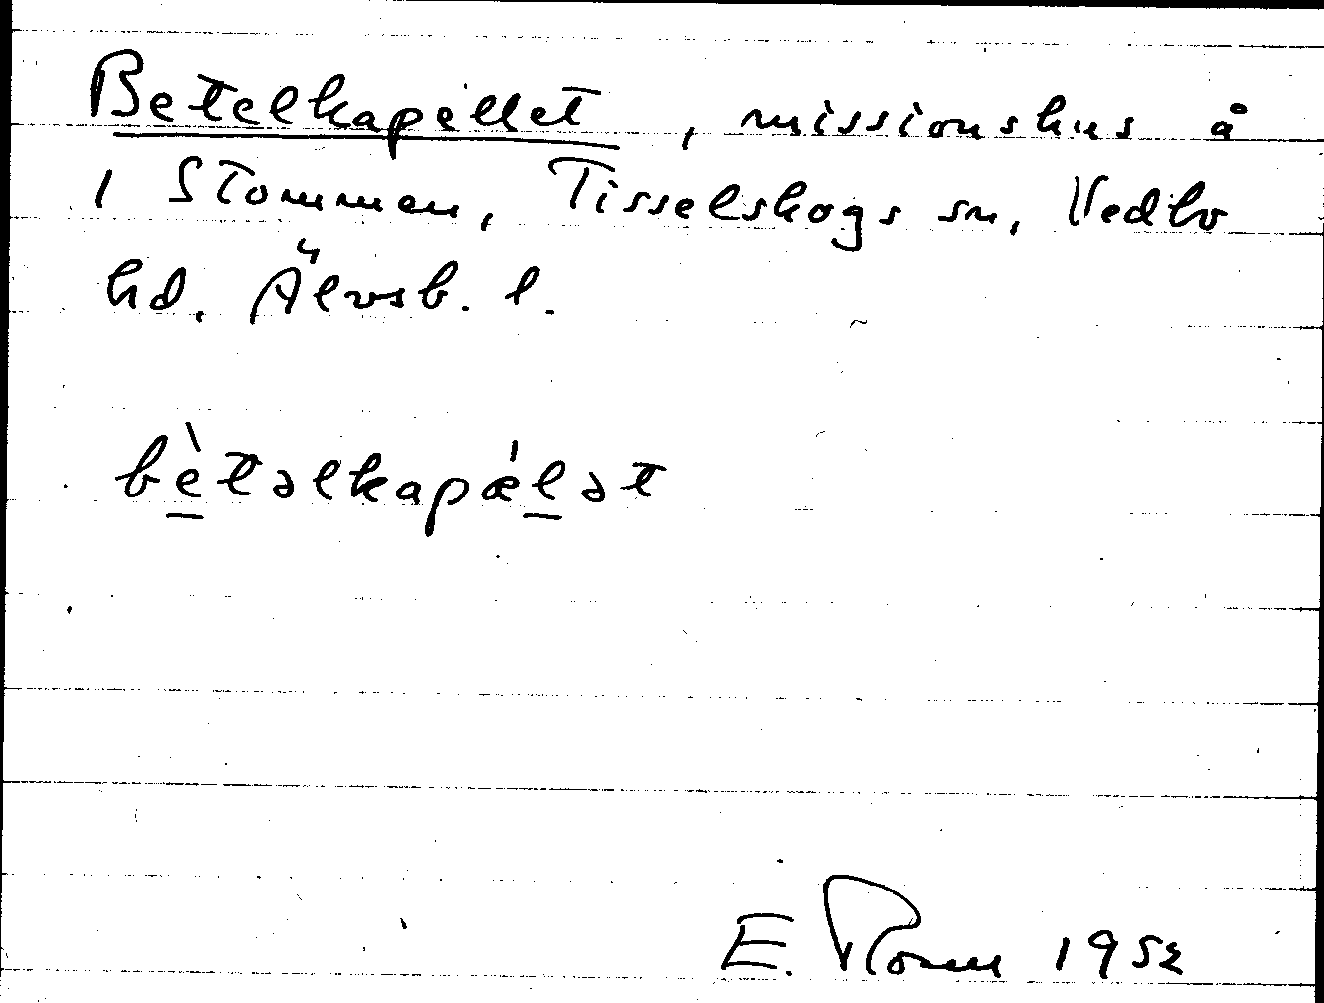 Betelkapellet, missionshus å
1 Stommen, Tisselskogs sn, Vedbo
hd. Älvsb. l.
bètəlkapǽlət
E. 1952